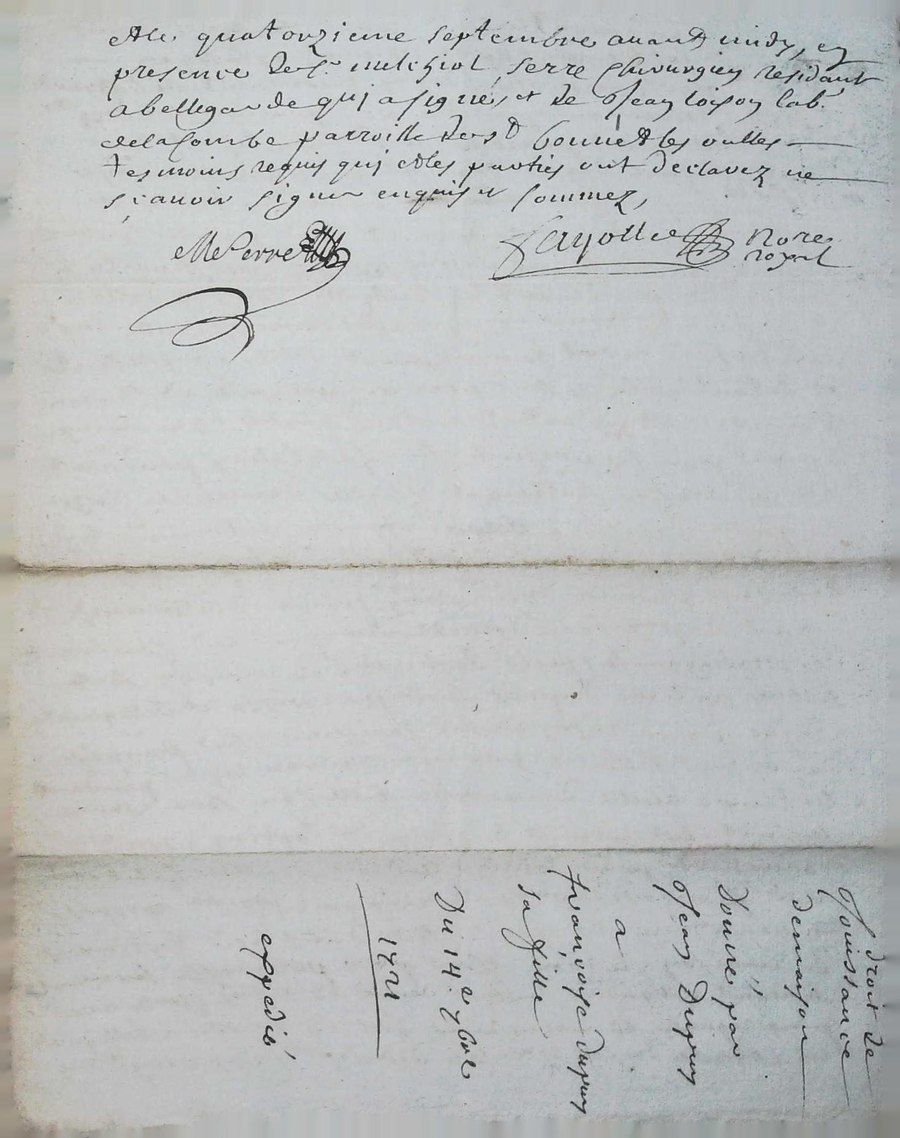 et le quatorzieme septembre avand midy, en
presence de sr. melchiol serre chirurgien residant
a bellegarde qui a signé, et de Jean loison lab.
de la Combe parroisse de st bonnet les oulles
tesmoins requis qui et les parties ont declarez ne
sçavoir signer enquis et sommez,
M Serre
Fayolle nore
royal
droit de
Jouissance
de maison
Donné par
Jean Dupuy
a
françoise dupuy
sa fille
Du 14e 7bre
1721
expedié